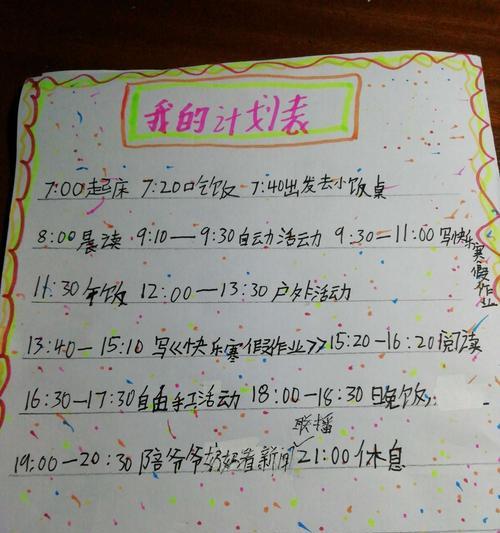 我的计划表
7:00起床 7:20吃饭 7:40出发去小饭桌
8:00晨读 9:10—9:30自云力活云力 9:30—11:00写快乐寒假作业
11:30午饭 12:00—13:30户外活动
13:40—15:10写《快乐寒假作业》15:20-16:20阅读
16:30-17:30自由手工活动 18:00-18:30晚饭,
19:00—20:30陪爷爷奶奶看新闻联播 21:00休息